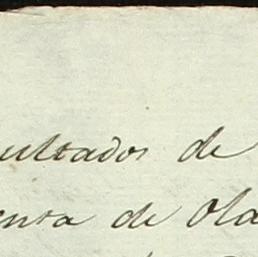 ultados de
enta de Ola